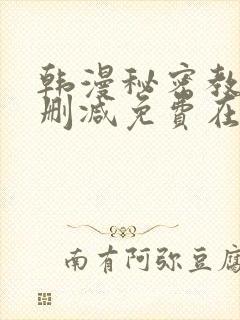 韩漫秘密教
删减免费在
南有阿弥豆腐